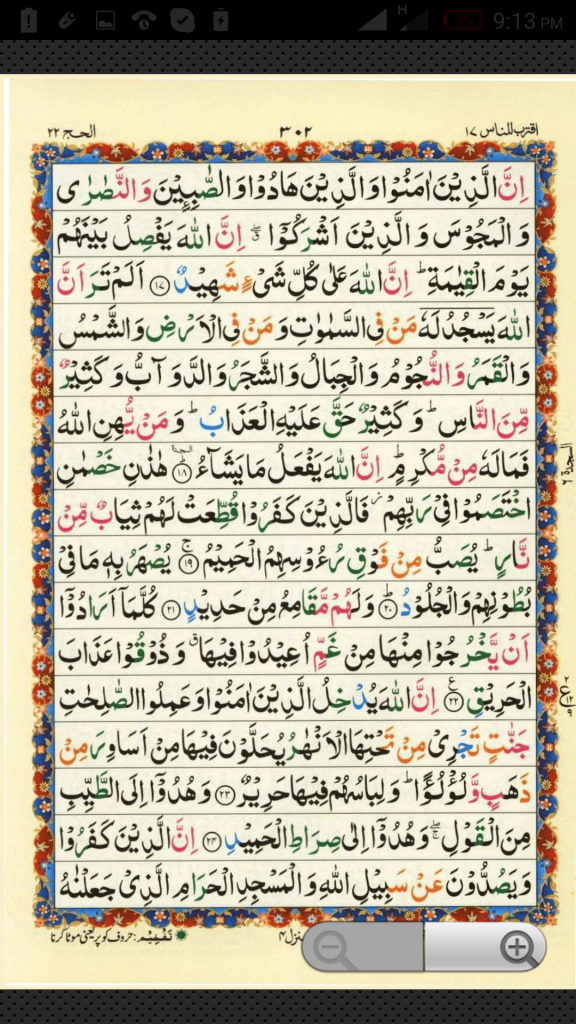 H 8% 9:13 PM
اقترب للناس ١٧ ٣٠٢ الحج ٢٢
اِنَّ الَّذِيْنَ اٰمَنُوْا وَ الَّذِيْنَ هَادُوْا وَ الصّٰبِـِٕيْنَ وَ النَّصٰرٰى
وَ الْمَجُوْسَ وَ الَّذِيْنَ اَشْرَكُوْۤا ۖۗ اِنَّ اللّٰهَ يَفْصِلُ بَيْنَهُمْ
يَوْمَ الْقِيٰمَةِ ؕ اِنَّ اللّٰهَ عَلٰى كُلِّ شَيْءٍ شَهِيْدٌ ﴿١٧﴾ اَلَمْ تَرَ اَنَّ
اللّٰهَ يَسْجُدُ لَهٗ مَنْ فِي السَّمٰوٰتِ وَ مَنْ فِي الْاَرْضِ وَ الشَّمْسُ
وَ الْقَمَرُ وَ النُّجُوْمُ وَ الْجِبَالُ وَ الشَّجَرُ وَ الدَّوَآبُّ وَ كَثِيْرٌ
مِّنَ النَّاسِ ؕ وَ كَثِيْرٌ حَقَّ عَلَيْهِ الْعَذَابُ ؕ وَ مَنْ يُّهِنِ اللّٰهُ
فَمَا لَهٗ مِنْ مُّكْرِمٍ ؕ اِنَّ اللّٰهَ يَفْعَلُ مَا يَشَآءُ ﴿١٨﴾ هٰذٰنِ خَصْمٰنِ
اخْتَصَمُوْا فِيْ رَبِّهِمْ ؗ فَالَّذِيْنَ كَفَرُوْا قُطِّعَتْ لَهُمْ ثِيَابٌ مِّنْ
نَّارٍ ؕ يُصَبُّ مِنْ فَوْقِ رُءُوْسِهِمُ الْحَمِيْمُ ۚ ﴿١٩﴾ يُصْهَرُ بِهٖ مَا فِيْ
بُطُوْنِهِمْ وَ الْجُلُوْدُ ؕ ﴿٢٠﴾ وَ لَهُمْ مَّقَامِعُ مِنْ حَدِيْدٍ ﴿٢١﴾ كُلَّمَاۤ اَرَادُوْۤا
اَنْ يَّخْرُجُوْا مِنْهَا مِنْ غَمٍّ اُعِيْدُوْا فِيْهَا ۗ وَ ذُوْقُوْا عَذَابَ
الْحَرِيْقِ ﴿٢٢﴾ اِنَّ اللّٰهَ يُدْخِلُ الَّذِيْنَ اٰمَنُوْا وَ عَمِلُوا الصّٰلِحٰتِ
جَنّٰتٍ تَجْرِيْ مِنْ تَحْتِهَا الْاَنْهٰرُ يُحَلَّوْنَ فِيْهَا مِنْ اَسَاوِرَ مِنْ
ذَهَبٍ وَّ لُؤْلُؤًا ؕ وَ لِبَاسُهُمْ فِيْهَا حَرِيْرٌ ﴿٢٣﴾ وَ هُدُوْۤا اِلَى الطَّيِّبِ
مِنَ الْقَوْلِ ۖۚ وَ هُدُوْۤا اِلٰى صِرَاطِ الْحَمِيْدِ ﴿٢٤﴾ اِنَّ الَّذِيْنَ كَفَرُوْا
وَ يَصُدُّوْنَ عَنْ سَبِيْلِ اللّٰهِ وَ الْمَسْجِدِ الْحَرَامِ الَّذِيْ جَعَلْنٰهُ
السجدة ٦
منزل ٤ تفخيم: حروف کو پُر یعنی موٹا کرنا